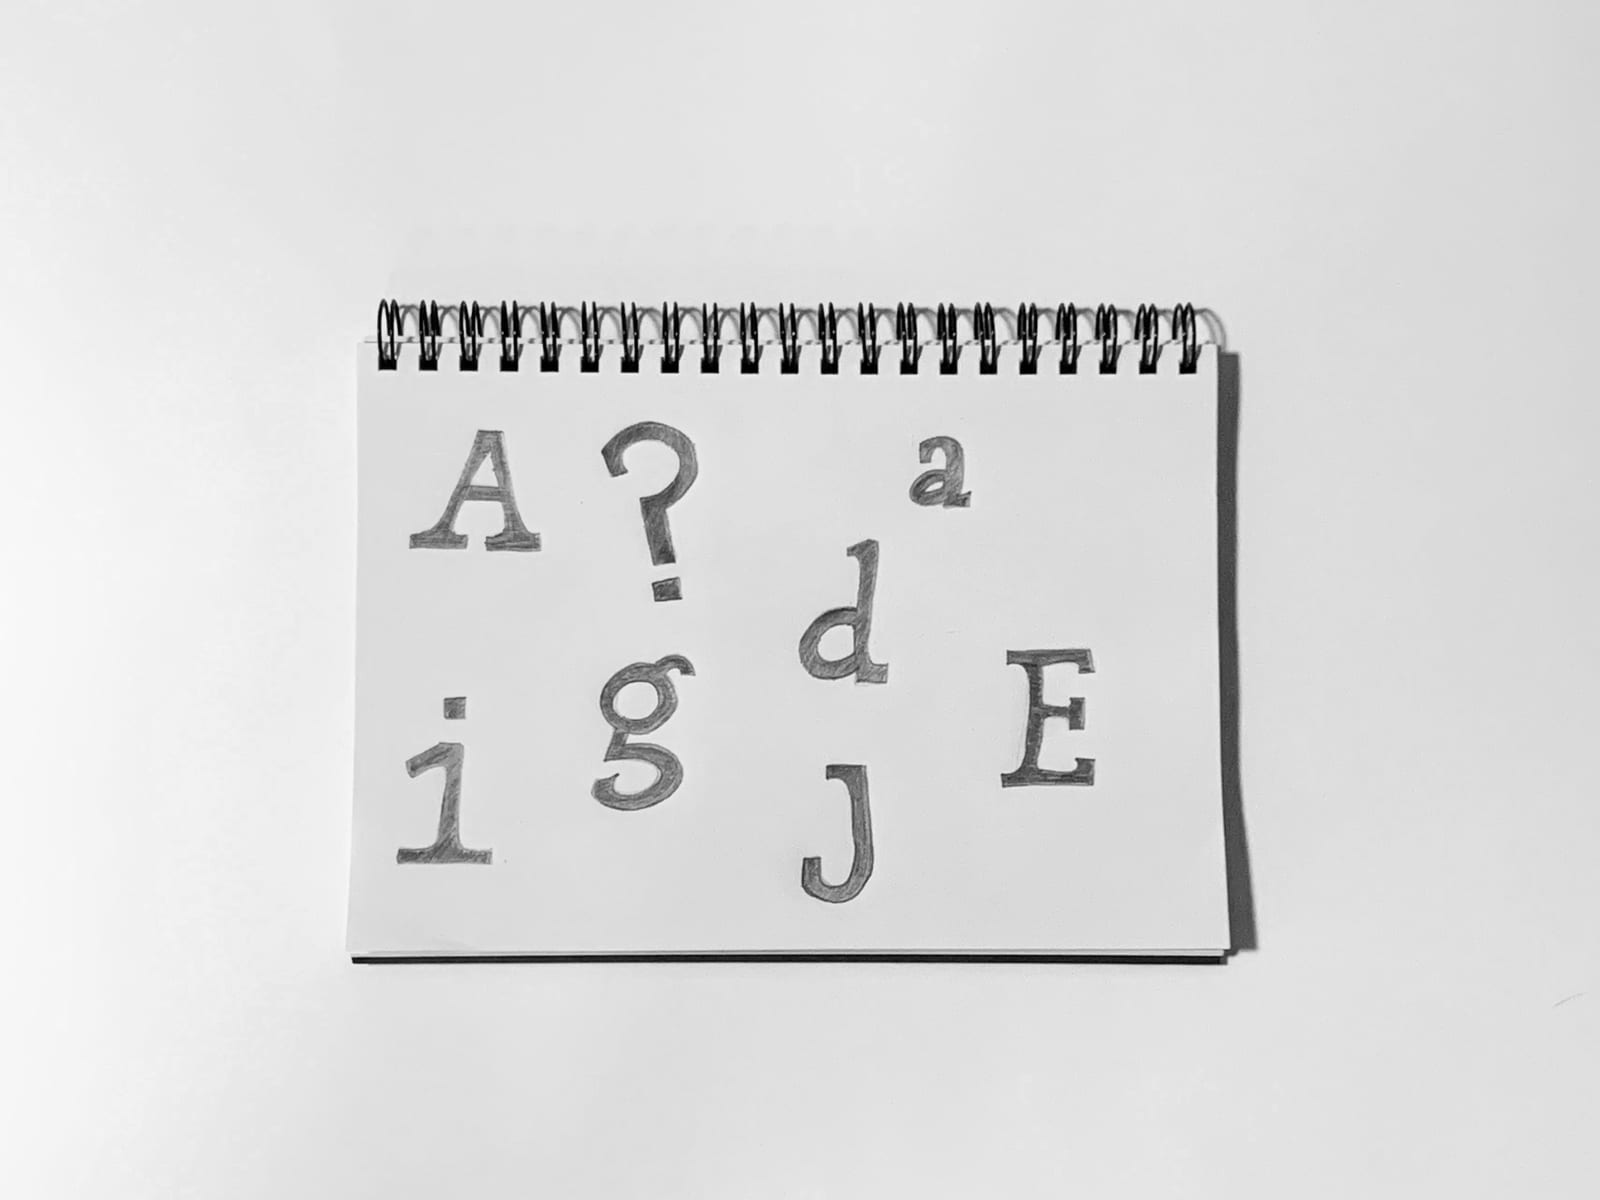 A ? a
d
i g E
J